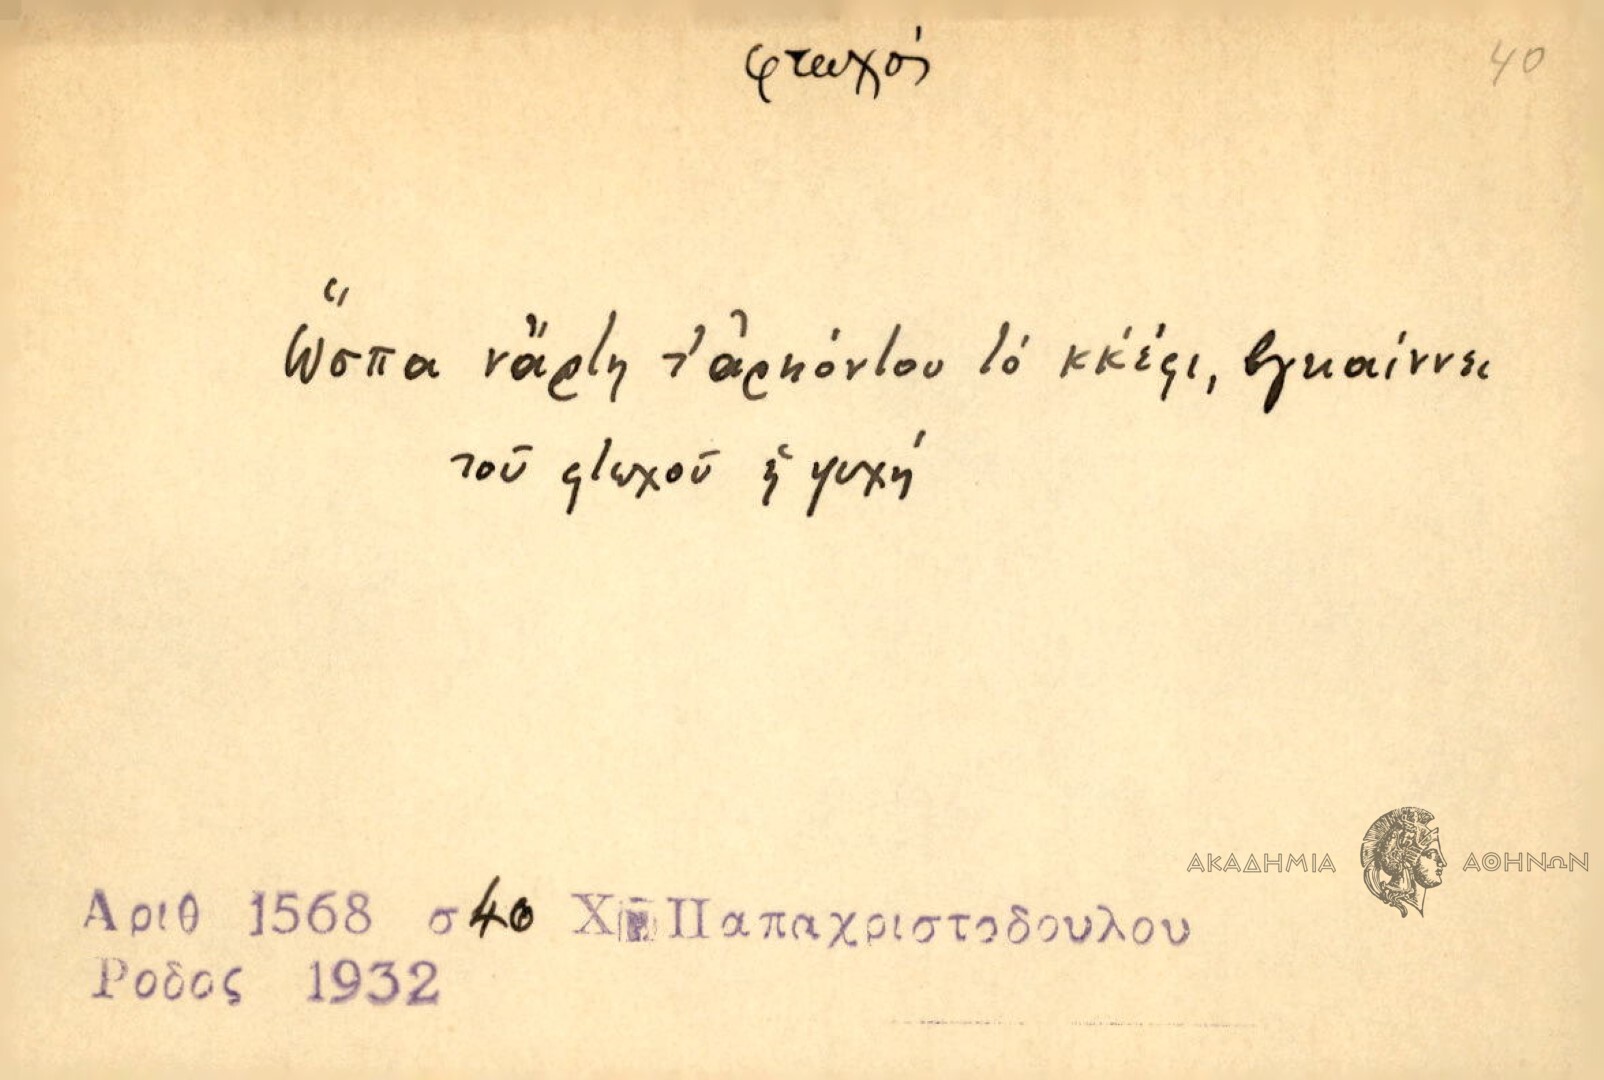 φτωχός
40
Ὥσπα νἄρτη τ' ἀρκόντου τό κκέφι, βγκαίννει
τοῦ φτωχοῦ ἡ ψυχή
ΑΚΑΔΗΜΙΑ ΑΘΗΝΩΝ
Αριθ 1568 σ40 Χ Παπαχριστοδουλου
Ροδος 1932